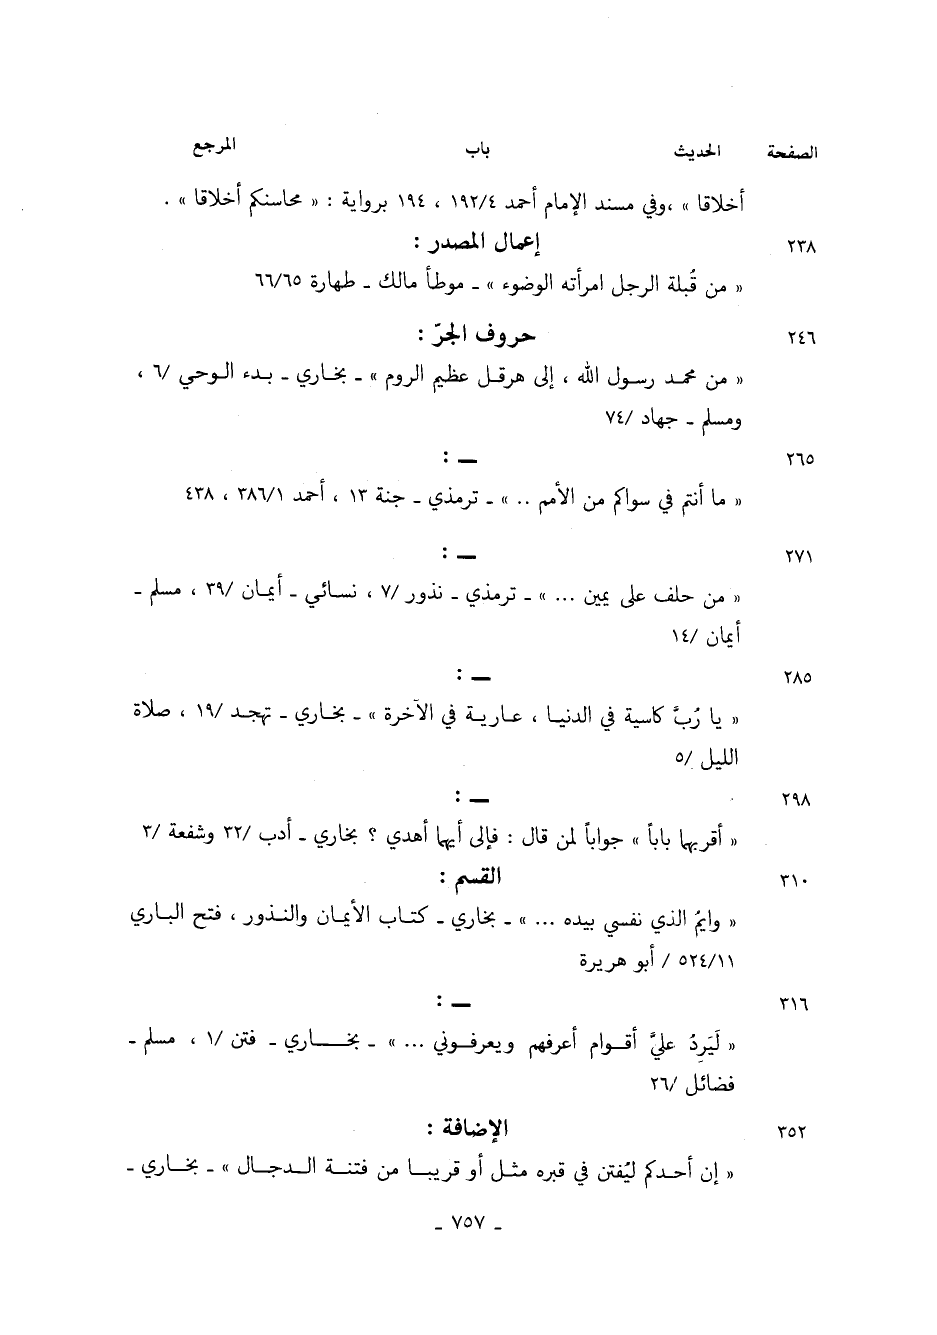 الصفحة الحديث باب المرجع
أخلاقا » ،وفي مسند الإمام أحمد ١٩٢/٤ ، ١٩٤ برواية : « محاسنكم أخلاقا » .
٢٣٨ إعمال المصدر :
« من قُبلة الرجل امرأته الوضوء » ـ موطأ مالك ـ طهارة ٦٦/٦٥
٢٤٦ حروف الجرّ :
« من محمد رسول الله ، إلى هرقل عظيم الروم » ـ بخاري ـ بدء الوحي /٦ ،
ومسلم ـ جهاد /٧٤
٢٦٥ ـ :
« ما أنتم في سواكم من الأمم .. » ـ ترمذي ـ جنة ١٣ ، أحمد ٣٨٦/١ ، ٤٣٨
٢٧١ ـ :
« من حلف على يمين ... » ـ ترمذي ـ نذور /٧ ، نسائي ـ أيمان /٣٩ ، مسلم ـ
أيمان /١٤
٢٨٥ ـ :
« يا رُبَّ كاسية في الدنيا ، عارية في الآخرة » ـ بخاري ـ تهجد /١٩ ، صلاة
الليل /٥
٢٩٨ ـ :
« أقربها باباً » جواباً لمن قال : فإلى أيها أهدي ؟ بخاري ـ أدب /٣٢ وشفعة /٣
٣١٠ القسم :
« وايمُ الذي نفسي بيده ... » ـ بخاري ـ كتاب الأيمان والنذور ، فتح الباري
٥٢٤/١١ / أبو هريرة
٣١٦ ـ :
« لَيَرِدُ عليَّ أقوام أعرفهم ويعرفوني ... » ـ بخاري ـ فتن /١ ، مسلم ـ
فضائل /٢٦
٣٥٢ الإضافة :
« إن أحدكم ليُفتن في قبره مثل أو قريبا من فتنة الدجال » ـ بخاري ـ
ـ ٧٥٧ ـ